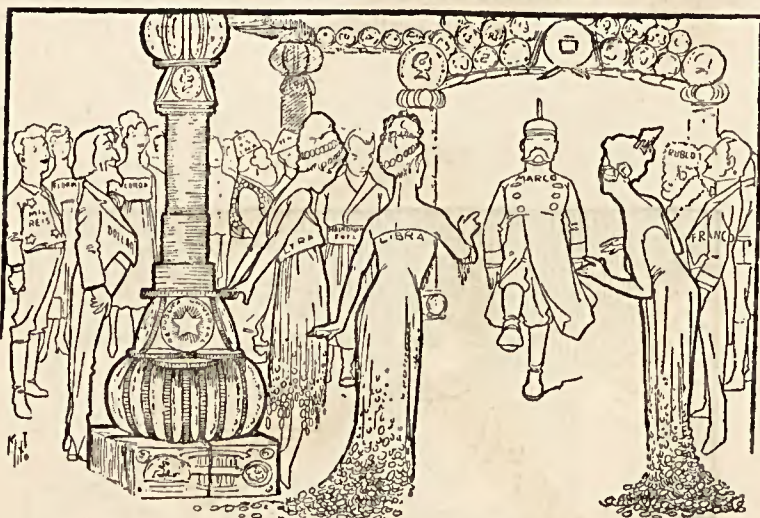 MIL
REIS
FLORIM
COROA
DOLLAR
LYRA
LIBRA
MARCO
RUBLO
FRANCO